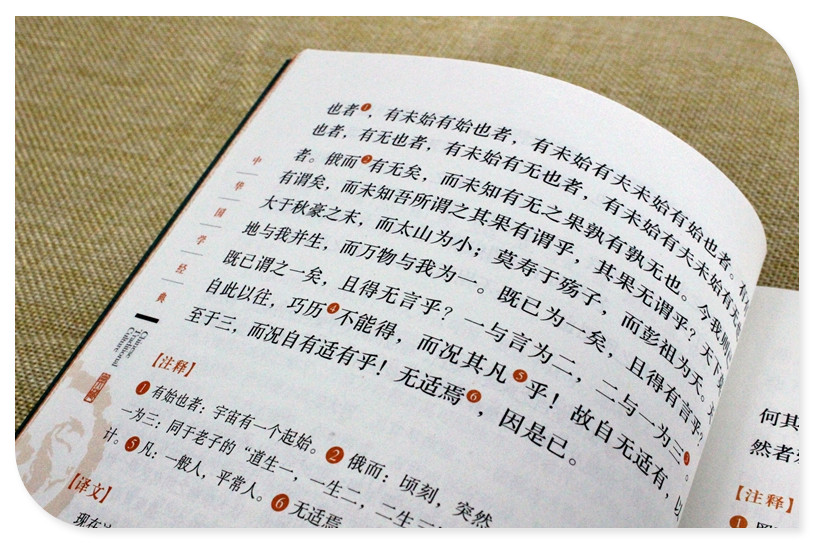 也者❶，有未始有始也者，有未始有夫未始有始也者。有
也者，有无也者，有未始有无也者，有未始有夫未始有无
者。俄而❷有无矣，而未知有无之果孰有孰无也。今我则
有谓矣，而未知吾所谓之其果有谓乎，其果无谓乎？天下
大于秋豪之末，而太山为小；莫寿于殇子，而彭祖为夭。天
地与我并生，而万物与我为一。既已为一矣，且得有言乎？
既已谓之一矣，且得无言乎？一与言为二，二与一为三
自此以往，巧历❹不能得，而况其凡❺乎！故自无适有，以
至于三，而况自有适有乎！无适焉❻，因是已。
【注释】
❶有始也者：宇宙有一个起始。❷俄而：顷刻，突然
一为三：同于老子的“道生一，一生二，二生三
计。❺凡：一般人，平常人。❻无适焉
【译文】
现在
中华国学经典
Chinese
Traditional
Culture
何其
然者
【注释】
❶